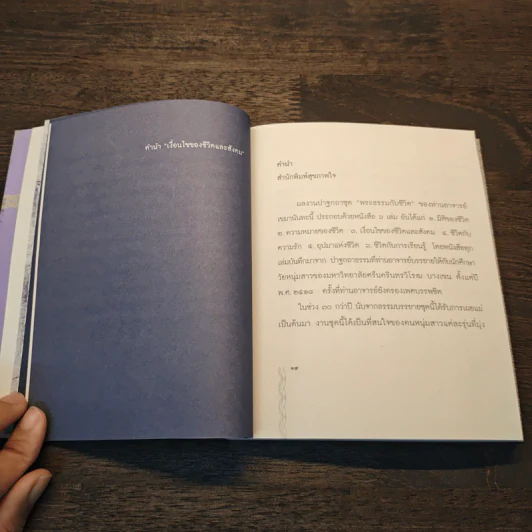 คำนำ "เงื่อนไขของชีวิตและสังคม"
คำนำ
สำนักพิมพ์สุขภาพใจ
ผลงานปาฐกถาชุด "พระธรรมกับชีวิต" ของท่านอาจารย์
เขมานันทะนี้ ประกอบด้วยหนังสือ ๖ เล่ม อันได้แก่ ๑. มิติของชีวิต
๒. ความหมายของชีวิต ๓. เงื่อนไขของชีวิตและสังคม ๔. ชีวิตกับ
ความรัก ๕. อุปมาแห่งชีวิต ๖. ชีวิตกับการเรียนรู้ โดยหนังสือทุก
เล่มบันทึกมาจาก ปาฐกถาธรรมที่ท่านอาจารย์บรรยายให้กับนักศึกษา
วัยหนุ่มสาวของมหาวิทยาลัยศรีนครินทรวิโรฒ บางเขน ตั้งแต่ปี
พ.ศ. ๒๕๑๘ ครั้งที่ท่านอาจารย์ยังครองเพศบรรพชิต
ในช่วง ๓๐ กว่าปี นับจากธรรมบรรยายชุดนี้ได้รับการเผยแผ่
เป็นต้นมา งานชุดนี้ได้เป็นที่สนใจของคนหนุ่มสาวแต่ละรุ่นที่มุ่ง